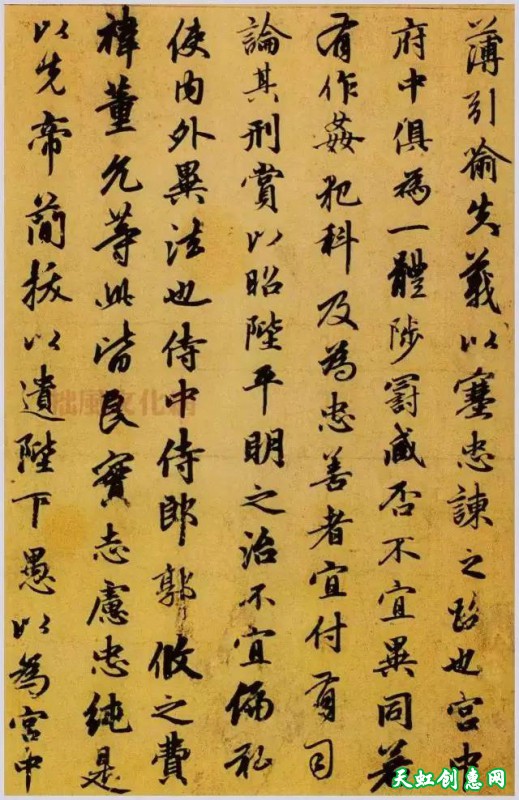 薄引喻失義以塞忠諫之路也宮中
府中俱為一體陟罰臧否不宜異同若
有作姦犯科及為忠善者宜付有司
論其刑賞以昭陛平明之治不宜偏私
使內外異法也侍中侍郎郭攸之費
禕董允等此皆良實志慮忠純是
以先帝簡拔以遺陛下愚以為宮中
拙風文化
天虹创意网